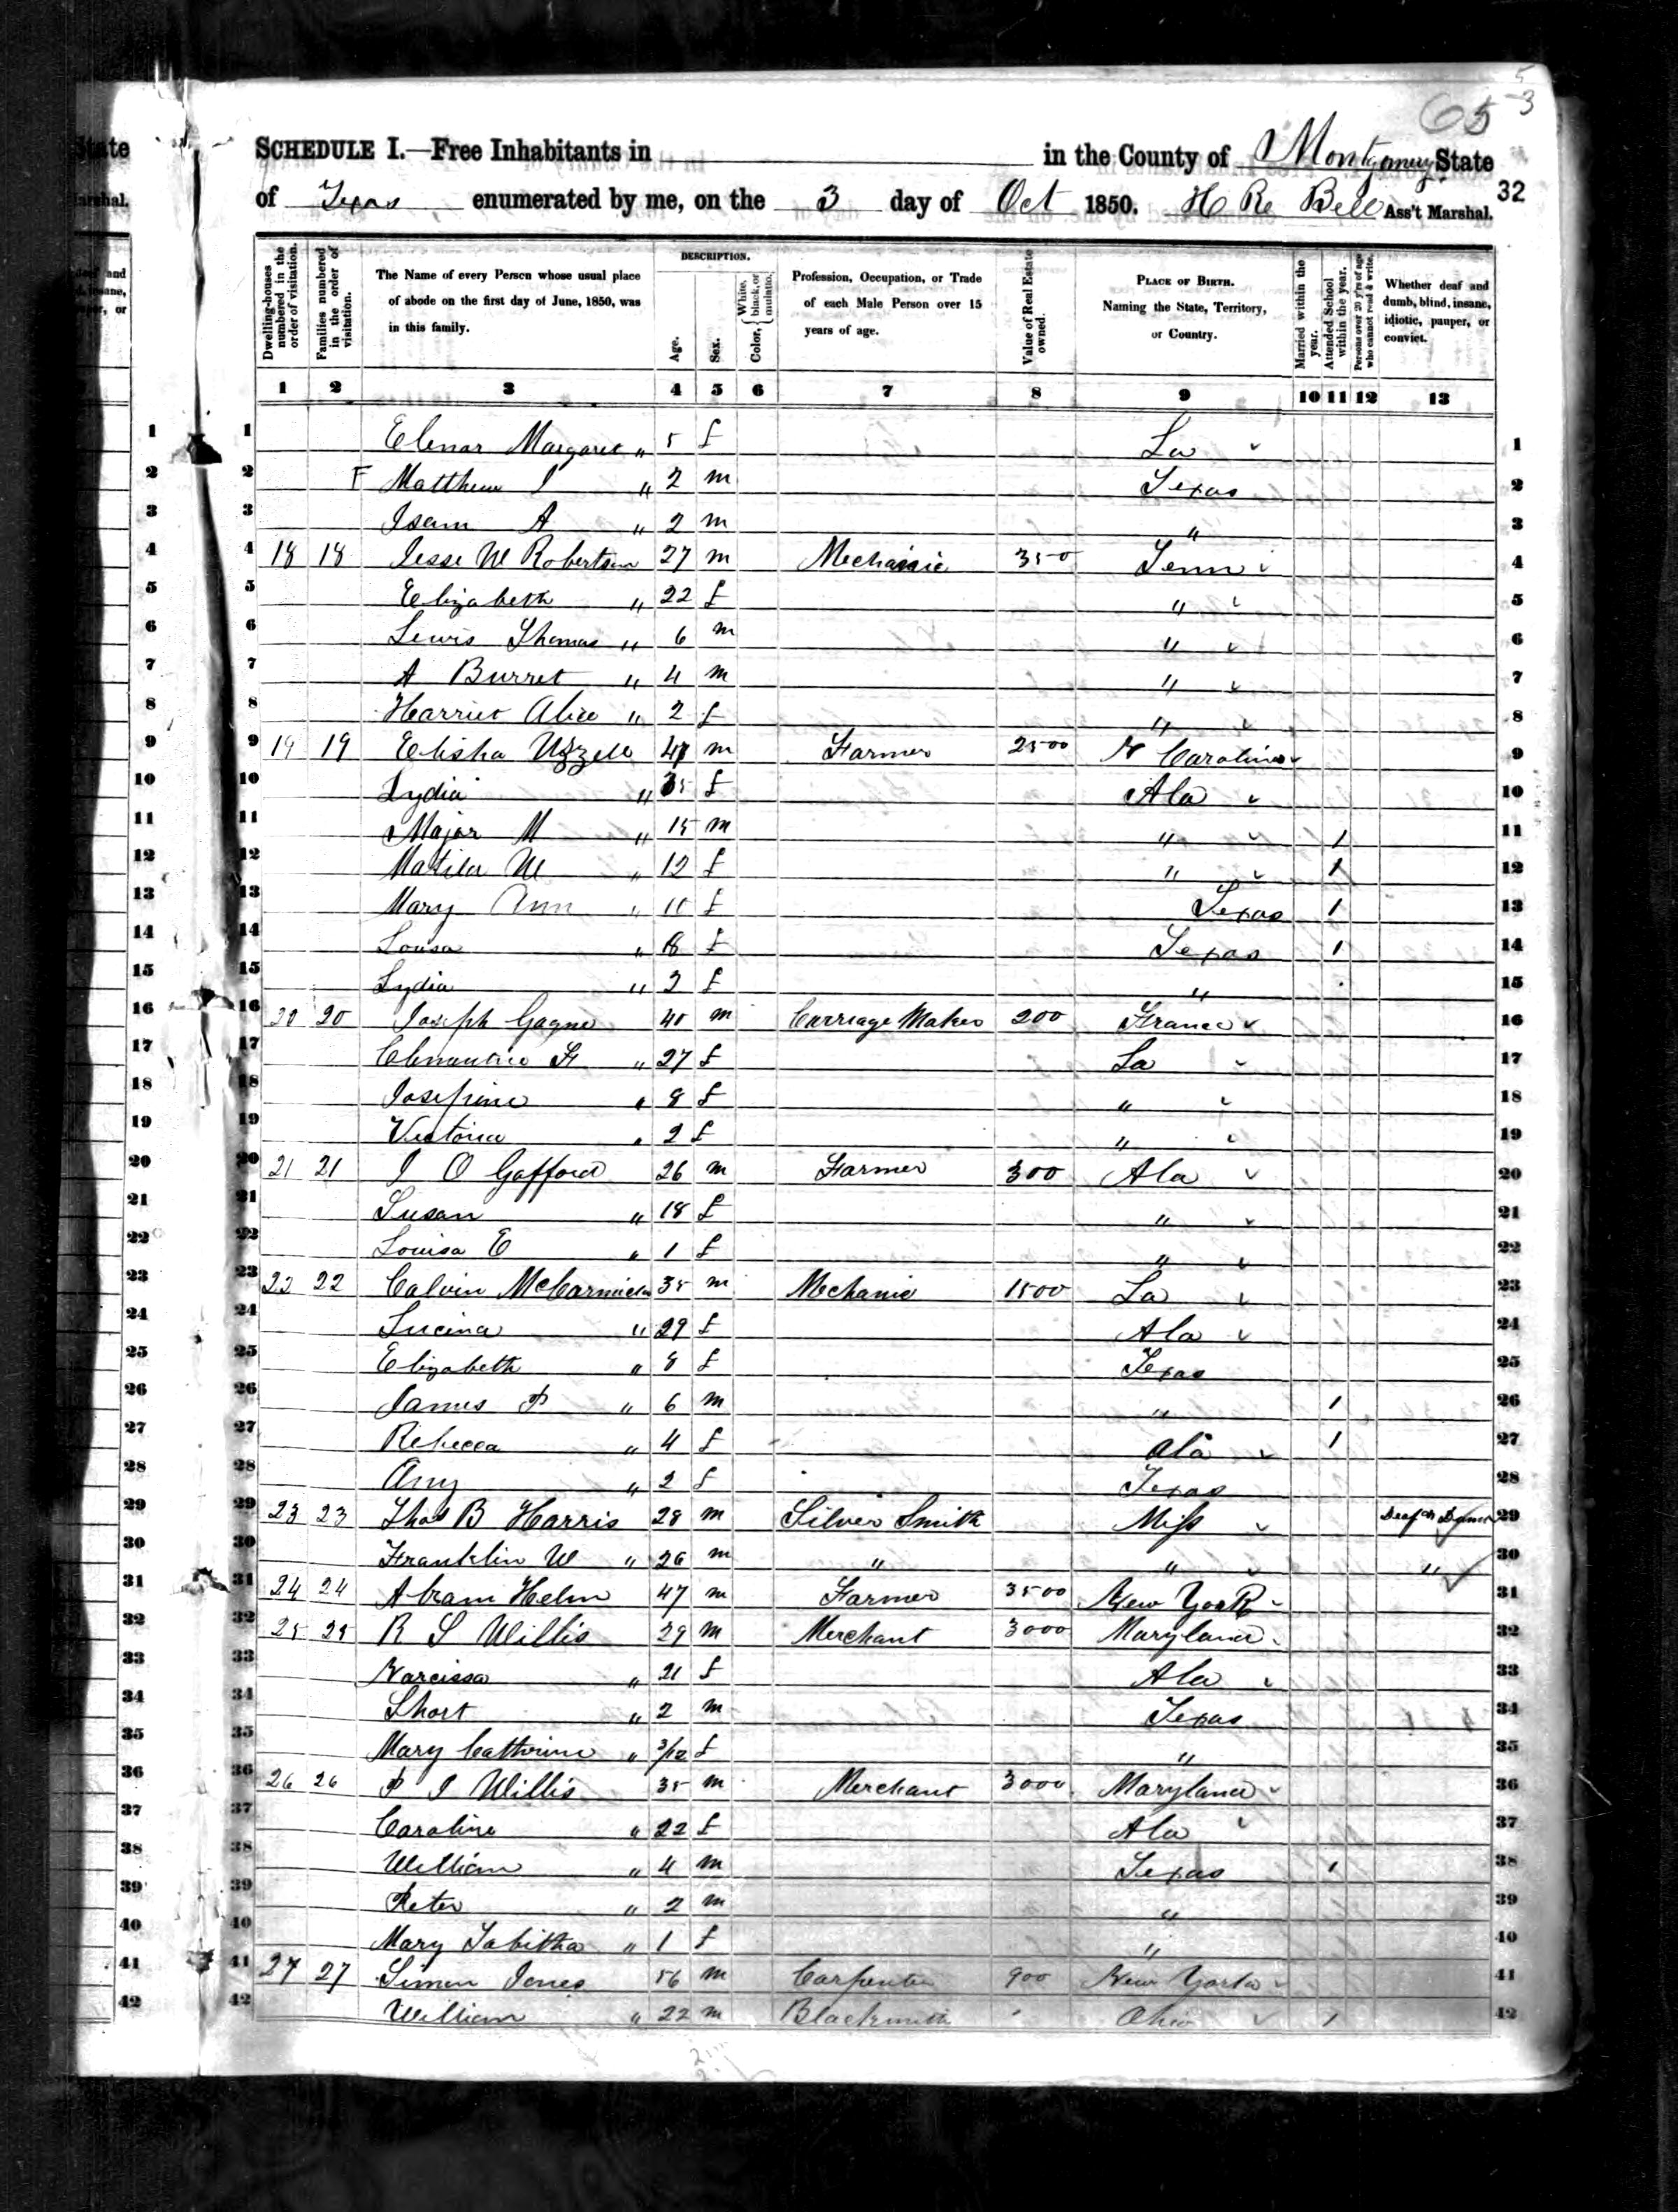 65 53
SCHEDULE I.—Free Inhabitants in in the County of Montgomery State
of Texas enumerated by me, on the 3 day of Oct 1850. Bell Ass't Marshal. 32
Dwelling-houses numbered in the order of visitation. Families numbered in the order of visitation. The Name of every Person whose usual place of abode on the first day of June, 1850, was in this family. DESCRIPTION. Age. Sex. Color, White, black, or mulatto. Profession, Occupation, or Trade of each Male Person over 15 years of age. Value of Real Estate owned. PLACE OF BIRTH. Naming the State, Territory, or Country. Married within the year. Attended School within the year. Persons over 20 y'rs of age who cannot read & write. Whether deaf and dumb, blind, insane, idiotic, pauper, or convict.
1 2 3 4 5 6 7 8 9 10 11 12 13
1 Elenar Margaret " 5 f La 1
2 F Matthew J " 2 m Texas 2
3 Isam A " 2 m " 3
4 18 18 Jesse W Robertson 27 m Mechanic 350 Tenn 4
5 Elizabeth " 22 f " 5
6 Lewis Thomas " 6 m " 6
7 A Burret " 4 m " 7
8 Harriet Alice " 2 f " 8
9 19 19 Elisha Uzzell m Farmer 2500 N Carolina 9
10 Lydia " 35 f Ala 10
11 Major M " 15 m " 1 11
12 Matilda M " 12 f " 1 12
13 Mary Ann " 10 f Texas 1 13
14 Lousa " 8 f Texas 1 14
15 Lydia " 2 f " 15
16 20 20 Joseph Gagne 40 m Carriage Maker 200 France 16
17 " 27 f La 17
18 Josefine " 8 f " 18
19 Victoria " 2 f " 19
20 21 21 J O Gafford 26 m Farmer 300 Ala 20
21 Susan " 18 f " 21
22 Louisa E " 1 f " 22
23 22 22 Calvin 35 m Mechanic 1500 La 23
24 Lucina " 29 f Ala 24
25 Elizabeth " 8 f Texas 25
26 James P " 6 m " 1 26
27 Rebecca " 4 f Ala 1 27
28 Amy " 2 f Texas 28
29 23 23 Thos B Harris 28 m Silver Smith Miss Deaf & Dumb 29
30 Franklin W " 26 m " " " 30
31 24 24 Abram Helm 47 m Farmer 3500 New York 31
32 25 25 R S Willis 29 m Merchant 3000 Maryland 32
33 Narcissa " 21 f Ala 33
34 Short " 2 m Texas 34
35 Mary Catherine " 3/12 f " 35
36 26 26 P J Willis 35 m Merchant 3000 Maryland 36
37 Caroline " 22 f Ala 37
38 William " 4 m Texas 1 38
39 Peter " 2 m " 39
40 Mary Tabitha " 1 f " 40
41 27 27 Simon Jones 56 m Carpenter 900 New York 41
42 William " 22 m Blacksmith Ohio 1 42